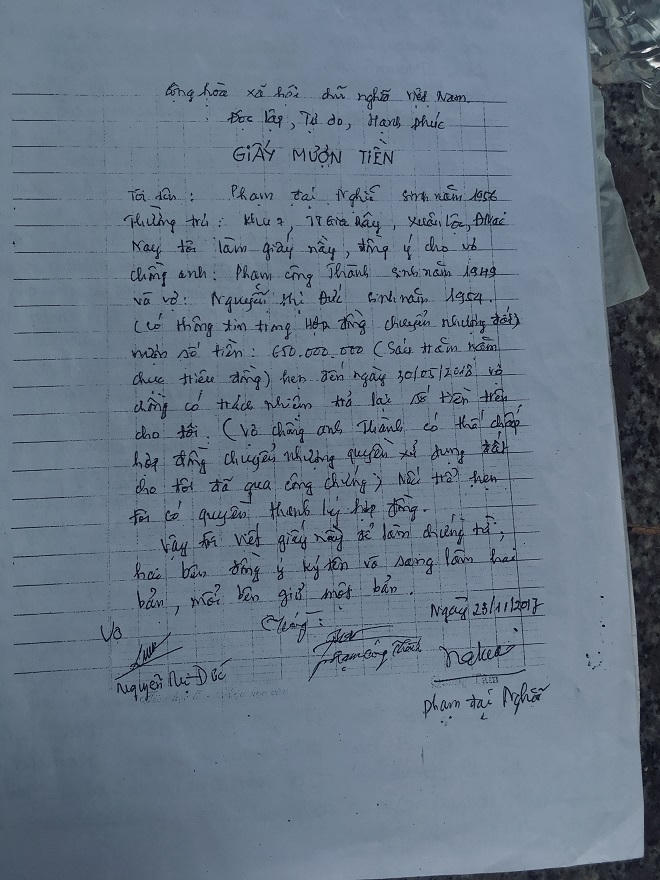 Cộng hòa xã hội chủ nghĩa Việt Nam.
Độc lập, Tự do, Hạnh phúc
GIẤY MƯỢN TIỀN
Tôi tên: Phạm đại Nghĩa sinh năm 1956
Thường trú: khu 7, TT Gia Rây, Xuân Lộc, ĐNai
Nay tôi làm giấy nầy, đồng ý cho vợ
chồng anh: Phạm công Thành sinh năm 1949
và vợ: Nguyễn thị Đức sinh năm 1954.
(có thông tin trong Hợp đồng chuyển nhượng đất)
mượn số tiền: 650.000.000 (Sáu trăm năm
chục triệu đồng) hẹn đến ngày 30/05/2018 vợ
chồng có trách nhiệm trả lại số tiền trên
cho tôi. (Vợ chồng anh Thành có thế chấp
hợp đồng chuyển nhượng quyền xử dụng đất
cho tôi đã qua công chứng) Nếu trể hẹn
tôi có quyền thanh lý hợp đồng.
Vậy tôi viết giấy nầy để làm chứng từ,
hai bên đồng ý ký tên và sang làm hai
bản, mỗi bên giử một bản.
Ngày 23/11/2017
Vợ Chồng:
Nguyễn Thị Đức Phạm Công Thành
Phạm đại Nghĩa